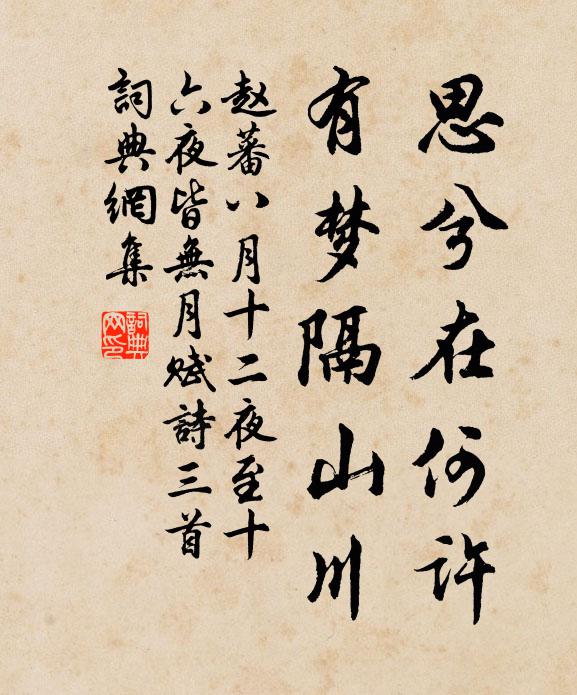 思兮在何许
有梦隔山川
赵蕃八月十二夜至十
六夜皆無月赋詩三首
詞典網集
詞典
网印